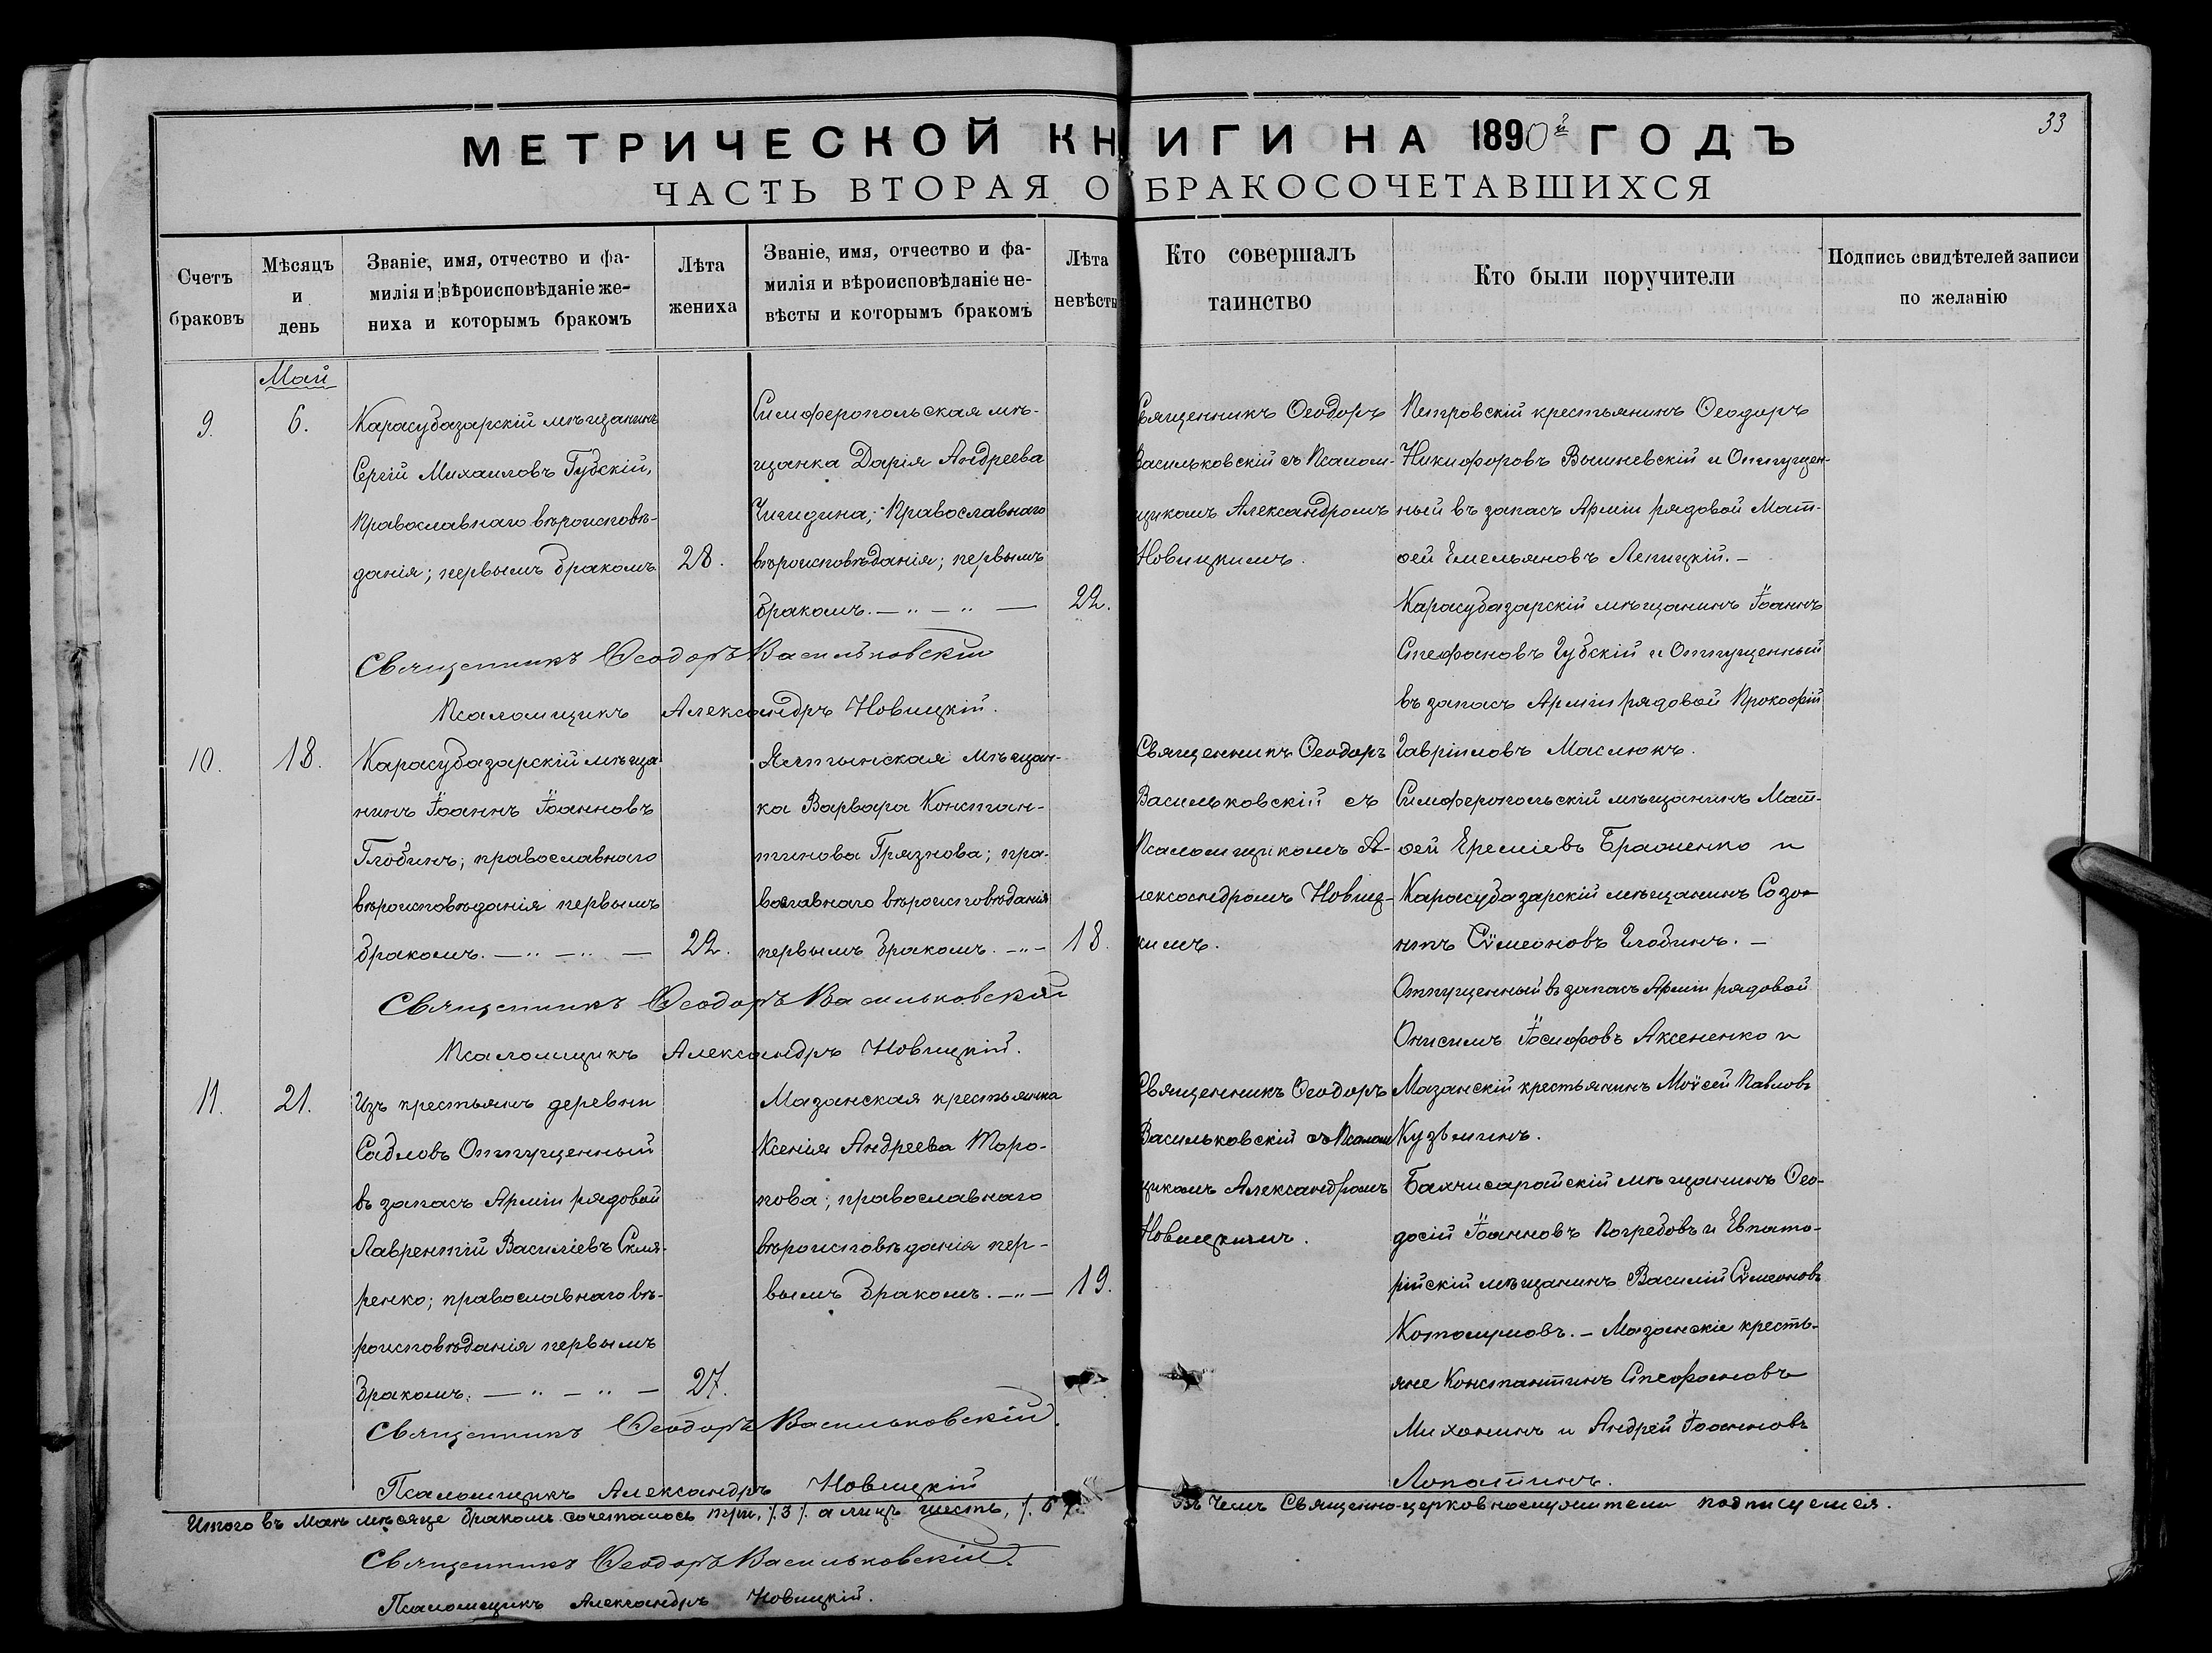 33
МЕТРИЧЕСКОЙ КНИГИ НА 1890й ГОДЪ
ЧАСТЬ ВТОРАЯ О БРАКОСОЧЕТАВШИХСЯ
Счетъ
браковъ
Мѣсяцъ
и
день
Званіе, имя, отчество и фа-
милія и вѣроисповѣданіе же-
ниха и которымъ бракомъ
Лѣта
жениха
Званіе, имя, отчество и фа-
милія и вѣроисповѣданіе не-
вѣсты и которымъ бракомъ
Лѣта
невѣсты
Кто совершалъ
таинство
Кто были поручители
Подпись свидѣтелей записи
по желанію
Май
9.
6.
Карасубазарскій мѣщанинъ
Сергій Михаиловъ Губскій,
Православнаго вѣроисповѣ-
данія; первымъ бракомъ
28.
Симферопольская мѣ-
щанка Дарія Андреева
Чигидина; Православнаго
вѣроисповѣданія; первымъ
бракомъ.
22.
Священникъ Ѳеодоръ
Васильковскій съ Псалом-
щикомъ Александромъ
Новицкимъ.
Петровскій крестьянинъ Ѳеодоръ
Никифоровъ Вышневскій и Отпущен-
ный въ запасъ Арміи рядовой Мат-
ѳей Емельяновъ Лепицкій. –
Карасубазарскій мѣщанинъ Іоаннъ
Стефановъ Губскій и Отпущенный
въ запасъ Арміи рядовой Прокофій
Гавріиловъ Маслюкъ.
Священникъ Ѳеодоръ Васильковскій
Псаломщикъ Александръ Новицкій.
10.
18.
Карасубазарскій мѣща
нинъ Іоаннъ Іоанновъ
Глобинъ; православнаго
вѣроисповѣданія первымъ
бракомъ.
22.
Ялтинская мѣщан-
ка Варвара Констан-
тинова Грязнова; пра-
вославнаго вѣроисповѣданія
первымъ бракомъ.
18.
Священникъ Ѳеодоръ
Васильковскій съ
Псаломщикомъ А-
лександромъ Новиц-
кимъ.
Симферопольскій мѣщанинъ Мат-
ѳей Ереміевъ и
Карасубазарскій мѣщанинъ Созо-
нтъ Сѵмеоновъ Глобинъ. –
Отпущенный въ запасъ Арміи рядовой
Онисимъ Іосифовъ Аксененко и
Мазанскій крестьянинъ Моѵсей Павловъ
Кузьминъ.
Священникъ Ѳеодоръ Васильковскій
Псаломщикъ Александръ Новицкій.
11.
21.
Изъ крестьянъ деревни
Сабловъ Отпущенный
въ запасъ Арміи рядовой
Лаврентій Василіевъ Скля-
ренко; православнаго вѣ-
роисповѣданія первымъ
бракомъ.
27.
Мазанская крестьянка
Ксенія Андреева Торо-
пова; православнаго
вѣроисповѣданія пер-
вымъ бракомъ.
19.
Священникъ Ѳеодоръ
Васильковскій съ Псалом
щикомъ Александромъ
Новицкимъ.
Бахчисарайскій мѣщанинъ Ѳео-
досій Іоанновъ Погребовъ и Евпато-
рійскій мѣщанинъ Василій Сѵмеоновъ
– Мазанскіе кресть-
яне Константинъ Стефановъ
Миханинъ и Андрей Іоанновъ
Лопатинъ.
Священникъ Ѳеодоръ Васильковскій.
Псаломщикъ Александръ Новицкій
Итого въ Маѣ мѣсяцѣ бракомъ сочеталось три, /.3/. а лицъ шесть, /.6/. Въ чемъ Священно-церковнослужители подписуемся.
Священникъ Ѳеодоръ Васильковскій.
Псаломщикъ Александръ Новицкій.